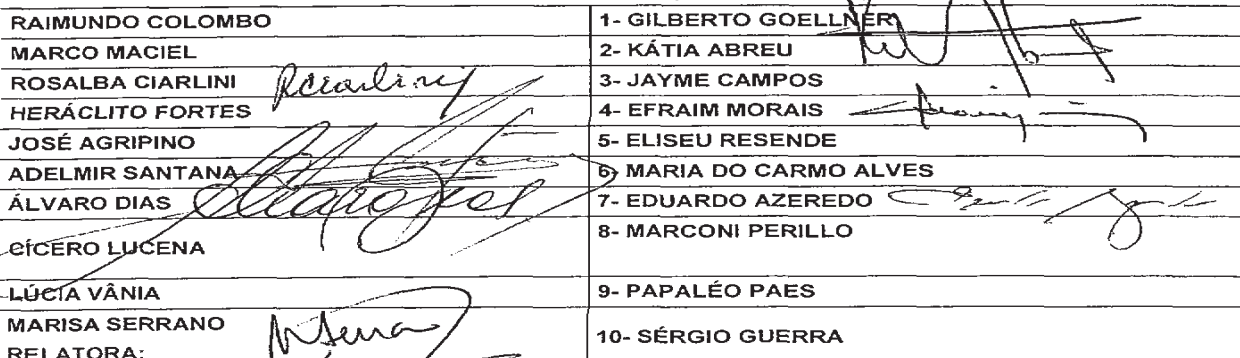 RAIMUNDO COLOMBO
1- GILBERTO GOELLNER
MARCO MACIEL
2- KÁTIA ABREU
ROSALBA CIARLINI
3- JAYME CAMPOS
HERÁCLITO FORTES
4- EFRAIM MORAIS
JOSÉ AGRIPINO
5- ELISEU RESENDE
ADELMIR SANTANA
6- MARIA DO CARMO ALVES
ÁLVARO DIAS
7- EDUARDO AZEREDO
CÍCERO LUCENA
8- MARCONI PERILLO
LÚCIA VÂNIA
9- PAPALÉO PAES
MARISA SERRANO
10- SÉRGIO GUERRA
RELATORA: